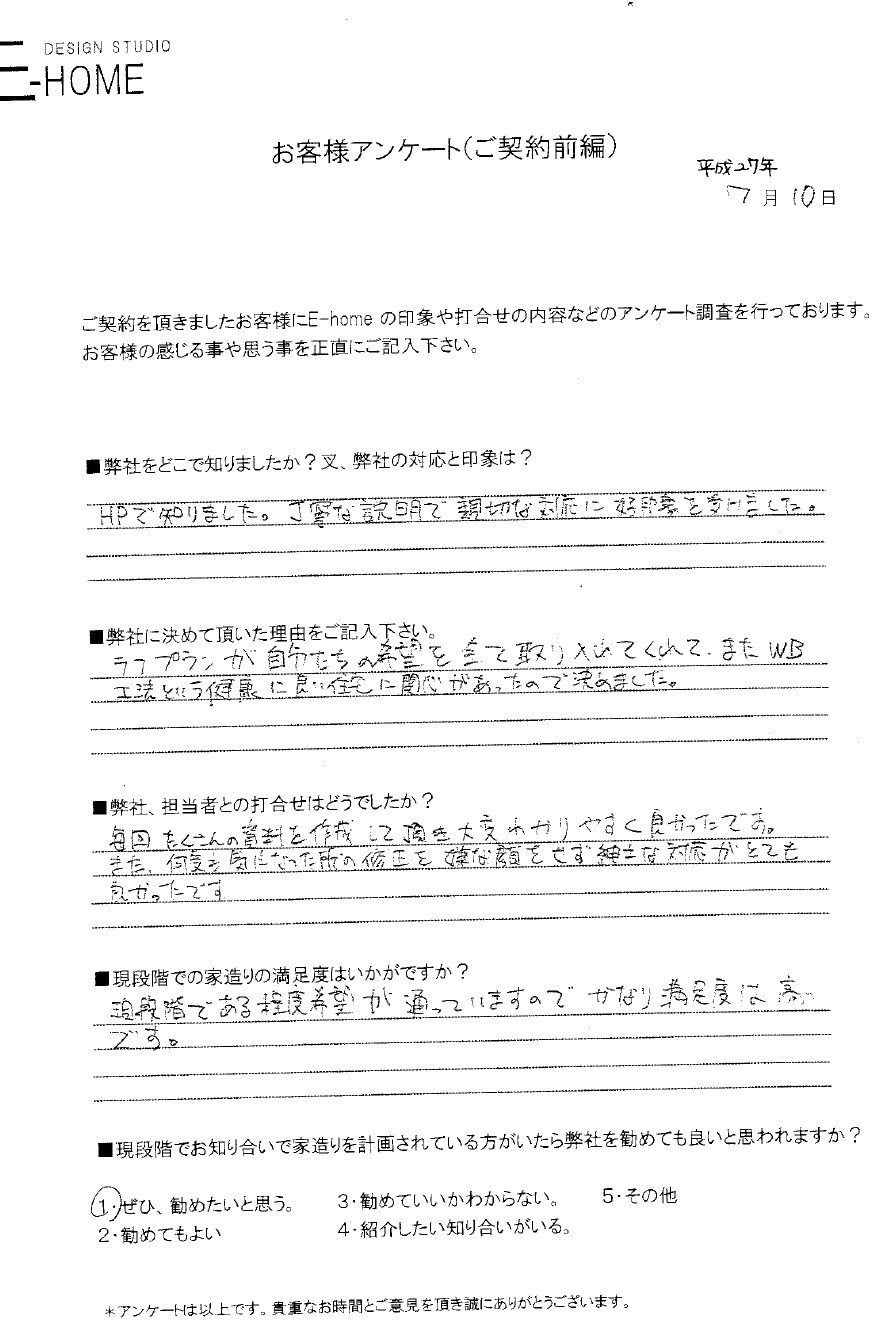 DESIGN STUDIO
E-HOME
お客様アンケート(ご契約前編)
平成27年
7月10日
ご契約を頂きましたお客様にE-home の印象や打合せの内容などのアンケート調査を行っております。
お客様の感じる事や思う事を正直にご記入下さい。
■弊社をどこで知りましたか?又、弊社の対応と印象は?
HPで知りました。丁寧な説明で親切な対応に好印象を受けました。
■弊社に決めて頂いた理由をご記入下さい。
ラフプランが自分たちの希望を全て取り入れてくれて、またWB
工法という健康に良い住宅に関心があったので決めました。
■弊社、担当者との打合せはどうでしたか?
毎回たくさんの資料を作成して頂き大変わかりやすく良かったです。
また、何度も気になった所の修正を嫌な顔をせず紳士な対応がとても
良かったです
■現段階での家造りの満足度はいかがですか?
現段階である程度希望が通っていますのでかなり満足度は高い
です。
■現段階でお知り合いで家造りを計画されている方がいたら弊社を勧めても良いと思われますか?
1・ぜひ、勧めたいと思う。 3・勧めていいかわからない。 5・その他
2・勧めてもよい 4・紹介したい知り合いがいる。
*アンケートは以上です。貴重なお時間とご意見を頂き誠にありがとうございます。